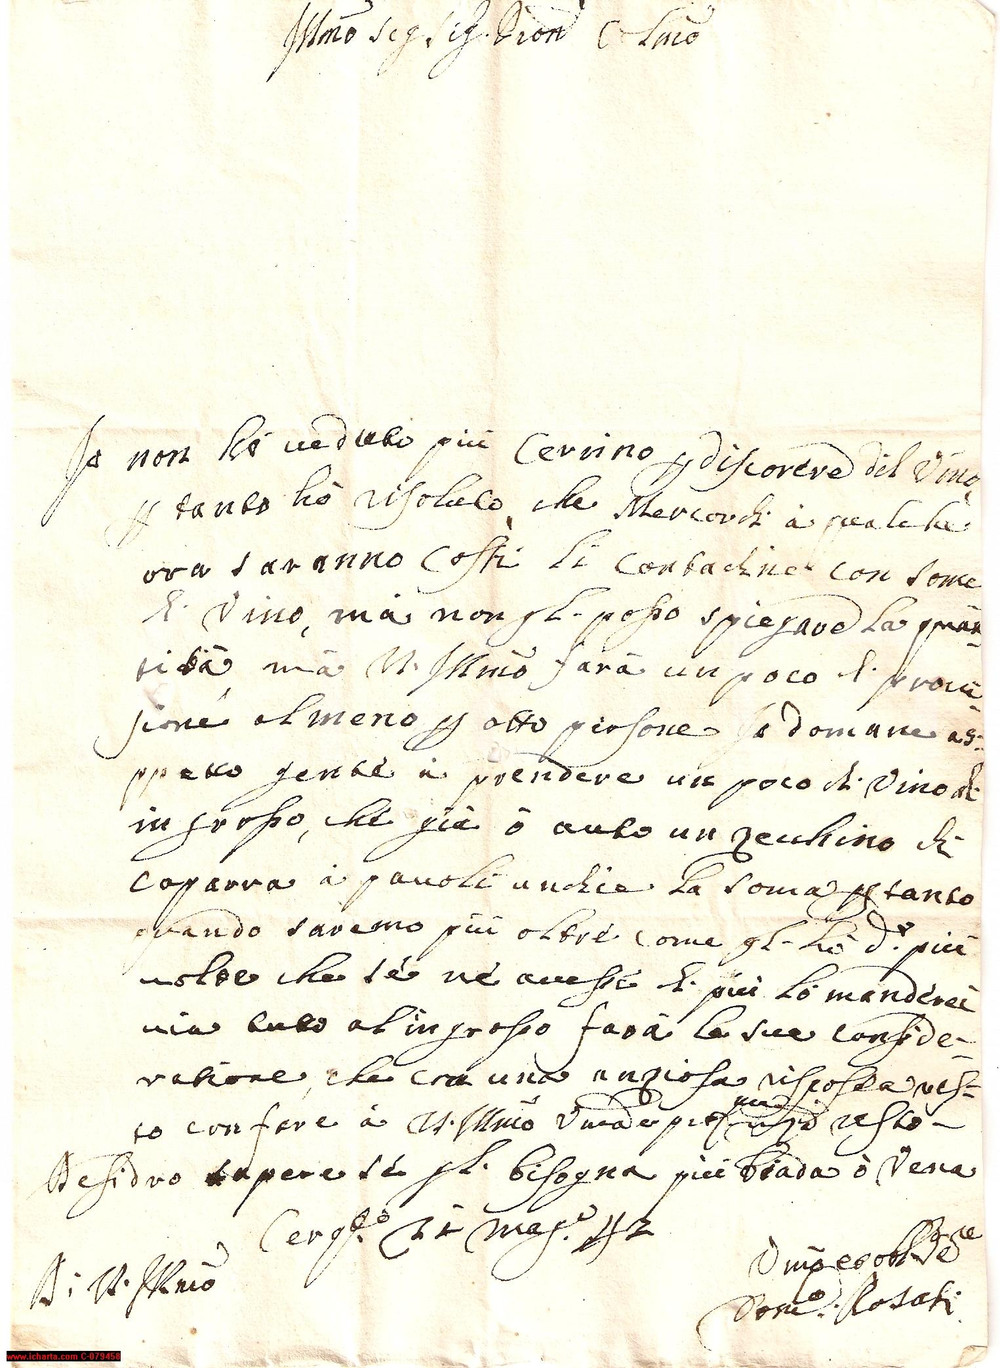 Illmo Sig Sig. Pron Colmo
Io non hò veduto più Cervino p discorere del Vino,
p tanto hò risoluto, che Mercordi à qualche
ora saranno Costi li Contadine con some
di Vino, mà non gli posso spiegare la quan-
tità mà V. Illmo farà un poco di provi-
sione almeno p otto persone Io domane as-
ppetto gente à prendere un poco di Vino di
in grosso, che già ò auto un zecchino di
caparra à pavoli undici la soma p tanto
quando saremo più oltre come gli hò do. più
volte che se ne avessi di più lo manderei
via tuto al in grosso farà la sua conside-
ratione, che con una anziosa risposta res-
to con fare à V. Illmo resto-
Desidro sapere se gli bisogna più biada ò Vena
Mag. 42
Di V. Illmo
Dom. Rosati
www.icharta.com C-079458